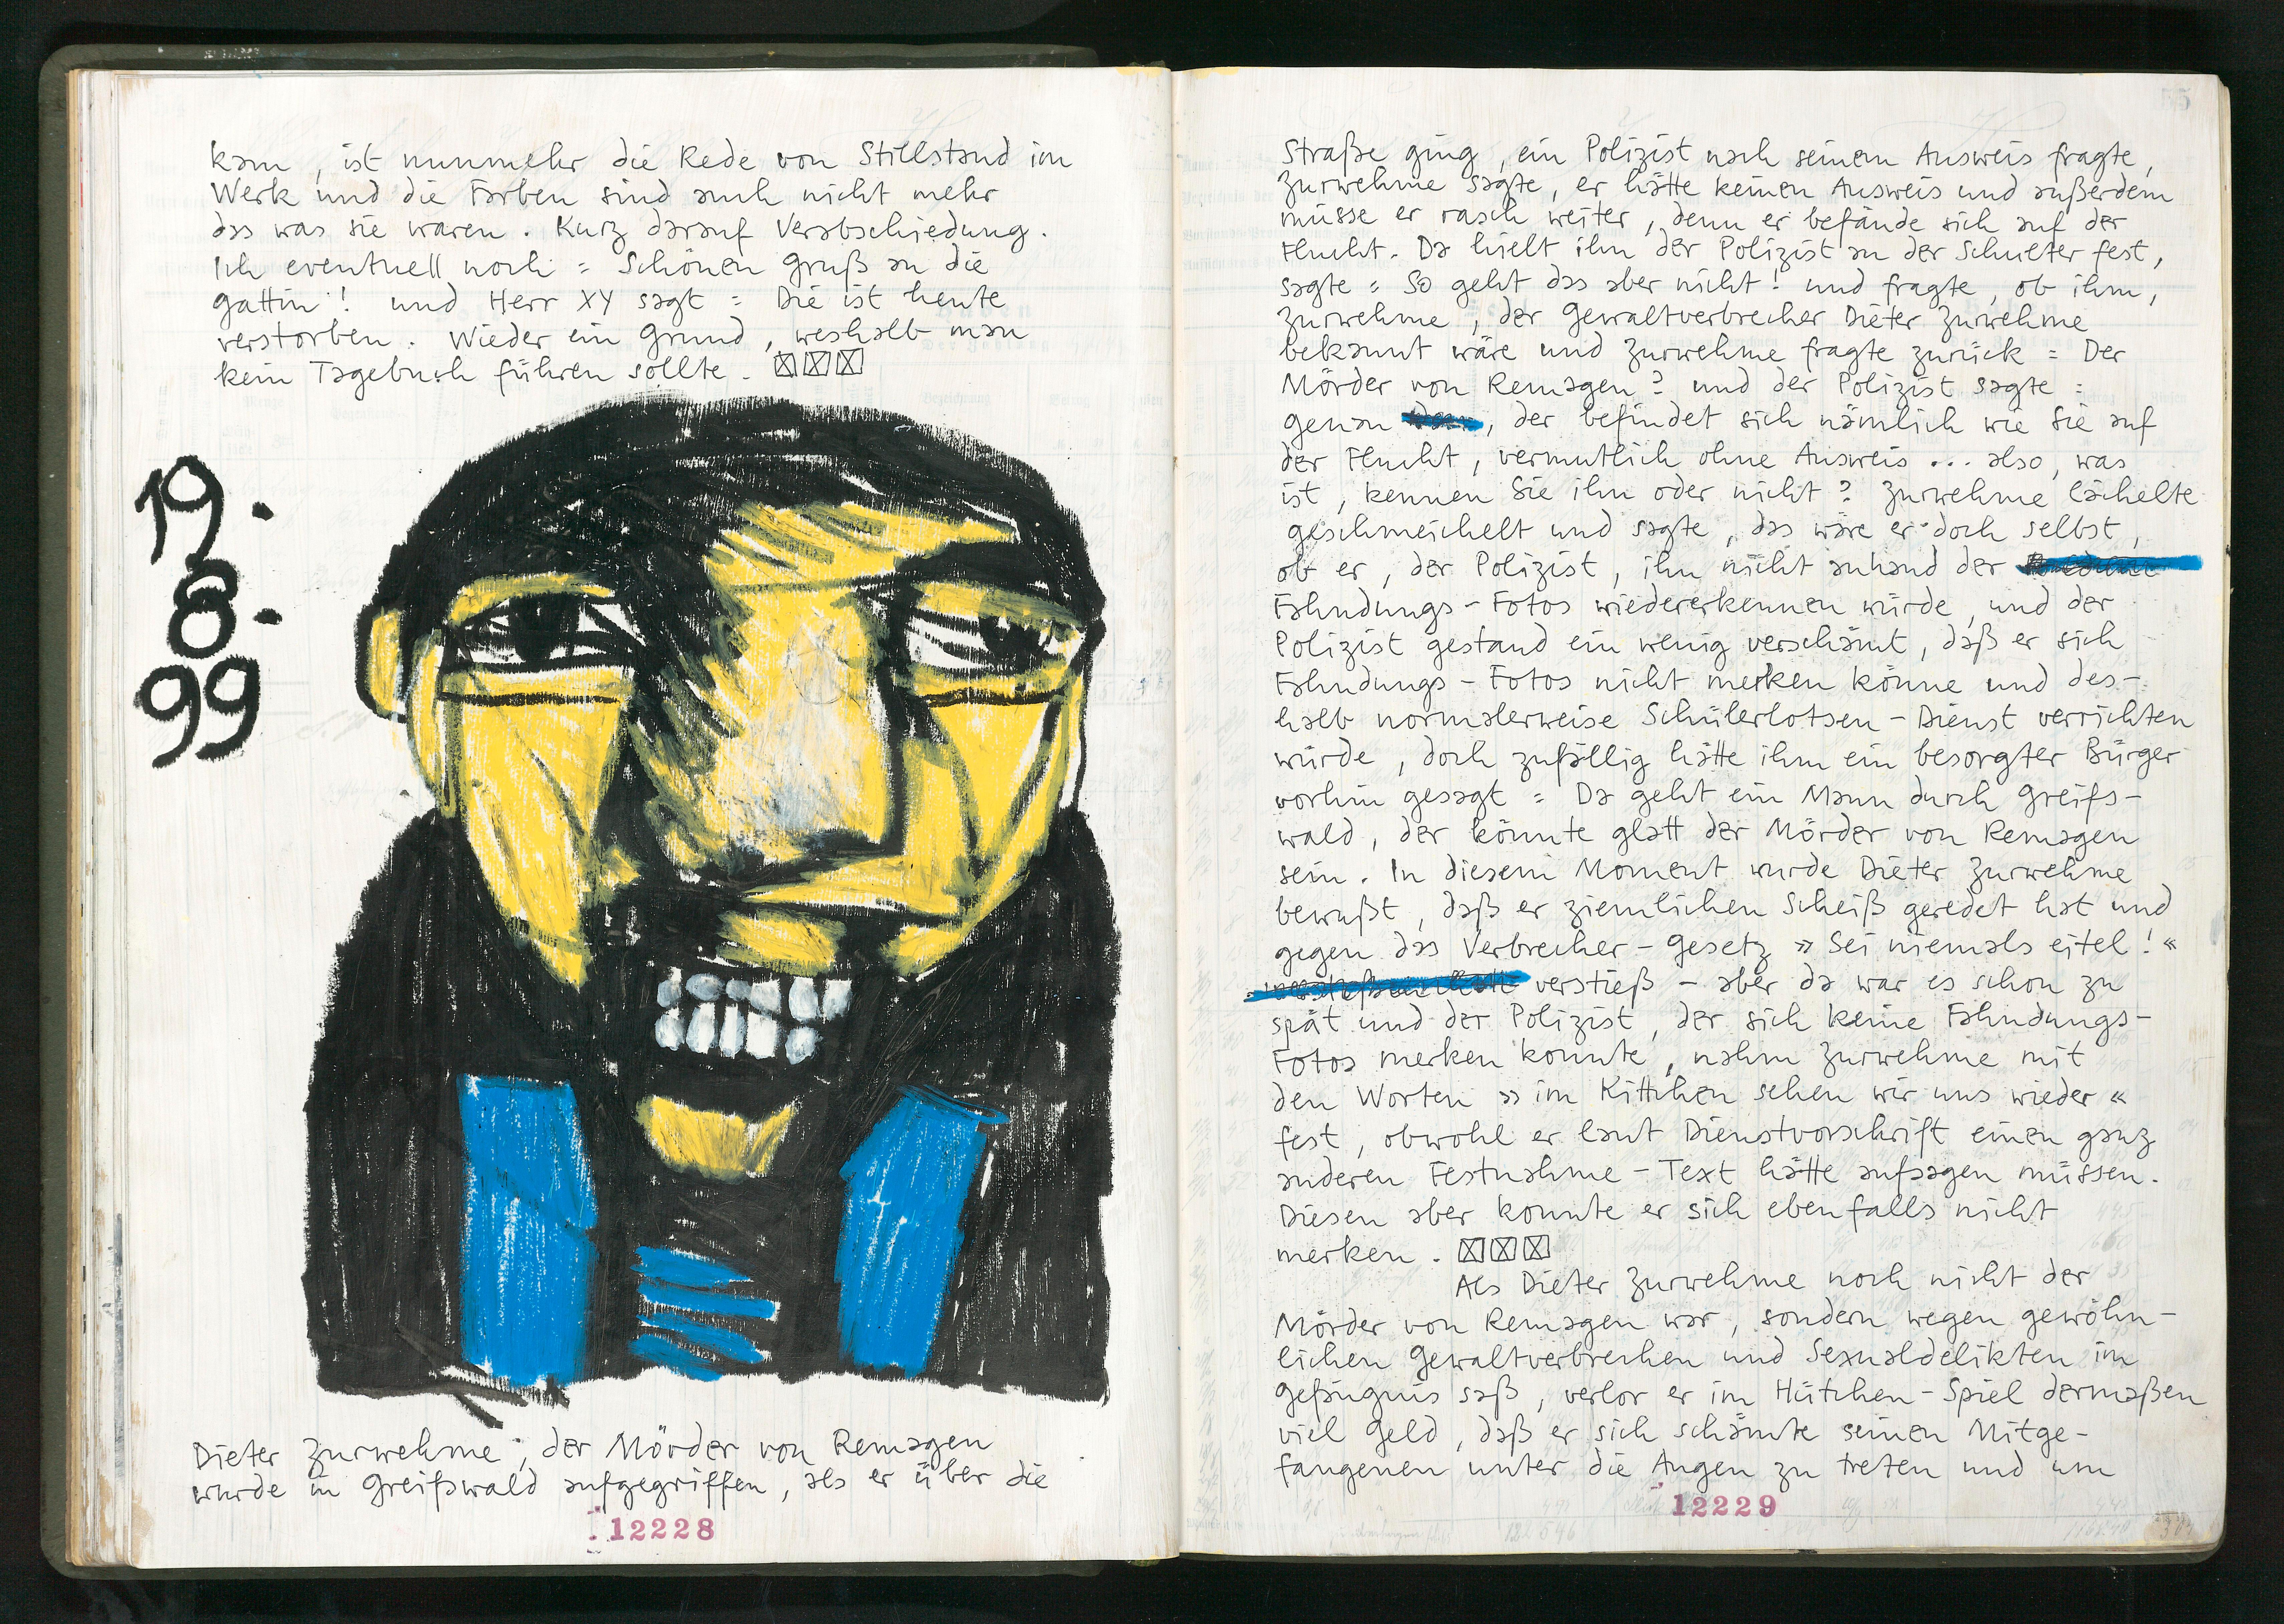 kam, ist nunmehr die Rede von Stillstand im
Werk und die Farben sind auch nicht mehr
das was sie waren. Kurz darauf Verabschiedung.
Ich eventuell noch: Schönen Gruß an die
Gattin! und Herr XY sagt: Die ist heute
verstorben. Wieder ein Grund, weshalb man
kein Tagebuch führen sollte.
19.
8.
99
Dieter Zurwehme, der Mörder von Remagen
wurde in Greifswald aufgegriffen, als er über die
12228
Straße ging, ein Polizist nach seinem Ausweis fragte,
Zurwehme sagte, er hätte keinen Ausweis und außerdem
müsse er rasch weiter, denn er befände sich auf der
Flucht. Da hielt ihn der Polizist an der Schulter fest,
sagte: So geht das aber nicht! und fragte, ob ihm,
Zurwehme, der Gewaltverbrecher Dieter Zurwehme
bekannt wäre und Zurwehme fragte zurück: Der
Mörder von Remagen? und der Polizist sagte:
genau, der befindet sich nämlich wie Sie auf
der Flucht, vermutlich ohne Ausweis ... also, was
ist, kennen Sie ihn oder nicht? Zurwehme lächelte
geschmeichelt und sagte, das wäre er doch selbst,
ob er, der Polizist, ihn nicht anhand der
Fahndungs-Fotos wiedererkennen würde, und der
Polizist gestand ein wenig verschämt, daß er sich
Fahndungs-Fotos nicht merken könne und des-
halb normalerweise Schülerlotsen-Dienst verrichten
würde, doch zufällig hätte ihm ein besorgter Bürger
vorhin gesagt: Da geht ein Mann durch Greifs-
wald, der könnte glatt der Mörder von Remagen
sein. In diesem Moment wurde Dieter Zurwehme
bewußt, daß er ziemlichen Scheiß geredet hat und
gegen das Verbrecher-Gesetz »Sei niemals eitel!«
verstieß - aber da war es schon zu
spät und der Polizist, der sich keine Fahndungs-
Fotos merken konnte, nahm Zurwehme mit
den Worten »im Kittchen sehen wir uns wieder«
fest, obwohl er laut Dienstvorschrift einen ganz
anderen Festnahme-Text hätte aufsagen müssen.
Diesen aber konnte er sich ebenfalls nicht
merken.
Als Dieter Zurwehme noch nicht der
Mörder von Remagen war, sondern wegen gewöhn-
lichen Gewaltverbrechen und Sexualdelikten im
Gefängnis saß, verlor er im Hütchen-Spiel dermaßen
viel Geld, daß er sich schämte seinen Mitge-
fangenen unter die Augen zu treten und um
12229